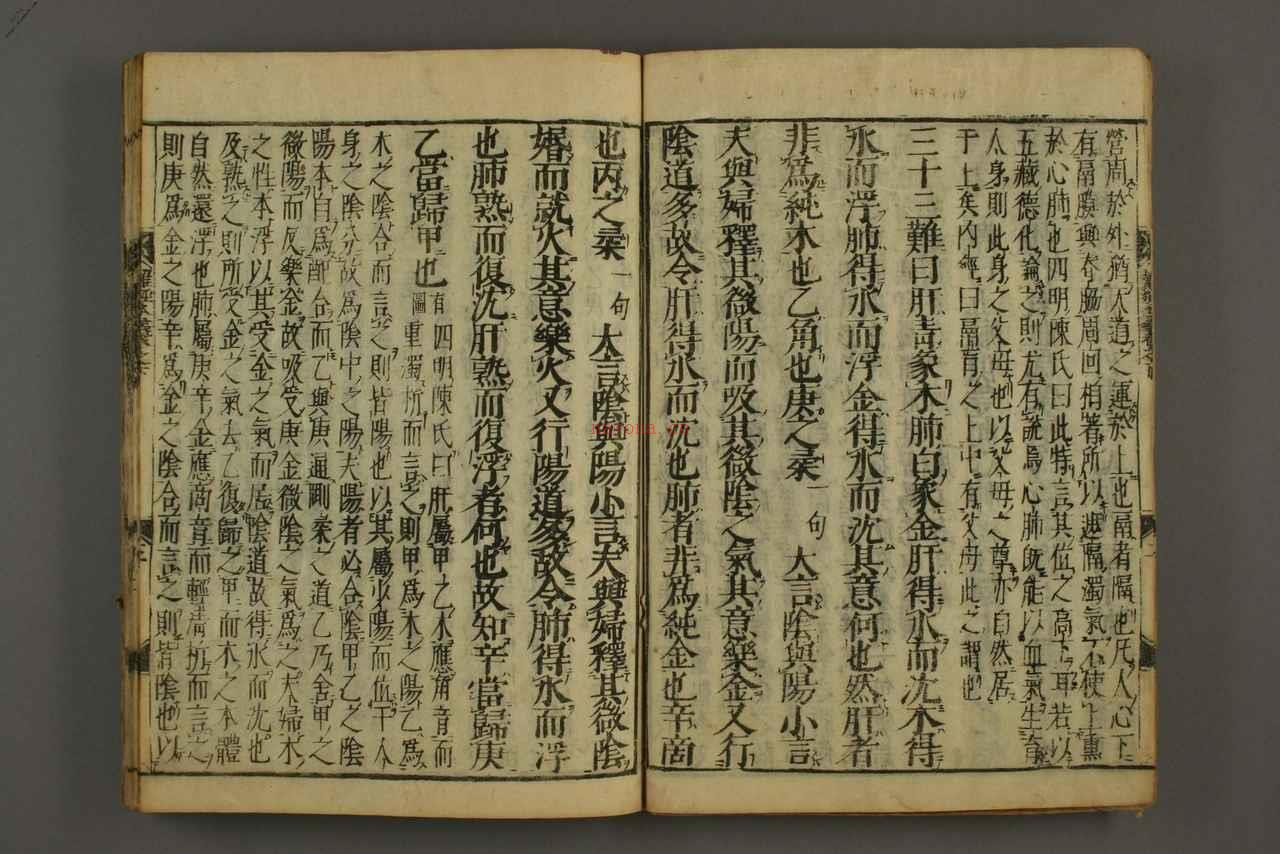 營周於外猶天道之運於上也鬲者隔也凡人心下
有鬲膜與脊脇周回相著所以遮隔濁氣不使上熏
於心肺也四明陳氏曰此特言其位之高下耳若以
五藏德化論之則尤有說焉心肺既能以血氣生育
人身則此身之父母也以父母之尊亦自然居
于上矣內經曰鬲肓之上中有父母此之謂也
三十三難曰肝青象木肺白象金肝得水而沈木得
水而浮肺得水而浮金得水而沈其意何也然肝者
非為純木也乙角也庚之柔一句大言陰與陽小言
夫與婦釋其微陽而吸其微陰之氣其意樂金又行
陰道多故令肝得水而沈也肺者非為純金也辛商
也丙之柔一句大言陰與陽小言夫與婦釋其微陰
婚而就火其意樂火又行陽道多故令肺得水而浮
也肺熟而復沈肝熟而復浮者何也故知辛當歸庚
乙當歸甲也
有圖四明陳氏曰肝屬甲乙木應角音而
重濁析而言之則甲為木之陽乙為
木之陰合而言之則皆陽也以其屬少陽而位于人
身之陰分故為陰中之陽夫陽者必合陰甲乙之陰
陽本自為配合而乙與庚通剛柔之道乙乃舍甲之
微陽而反樂金故吸受庚金微陰之氣為之夫婦木
之性本浮以其受金之氣而居陰道故得水而沈也
及熟之則所受金之氣去乙復歸之甲而木之本體
自然還浮也肺屬庚辛金應商音而輕清析而言之
則庚為金之陽辛為金之陰合而言之則皆陰也以